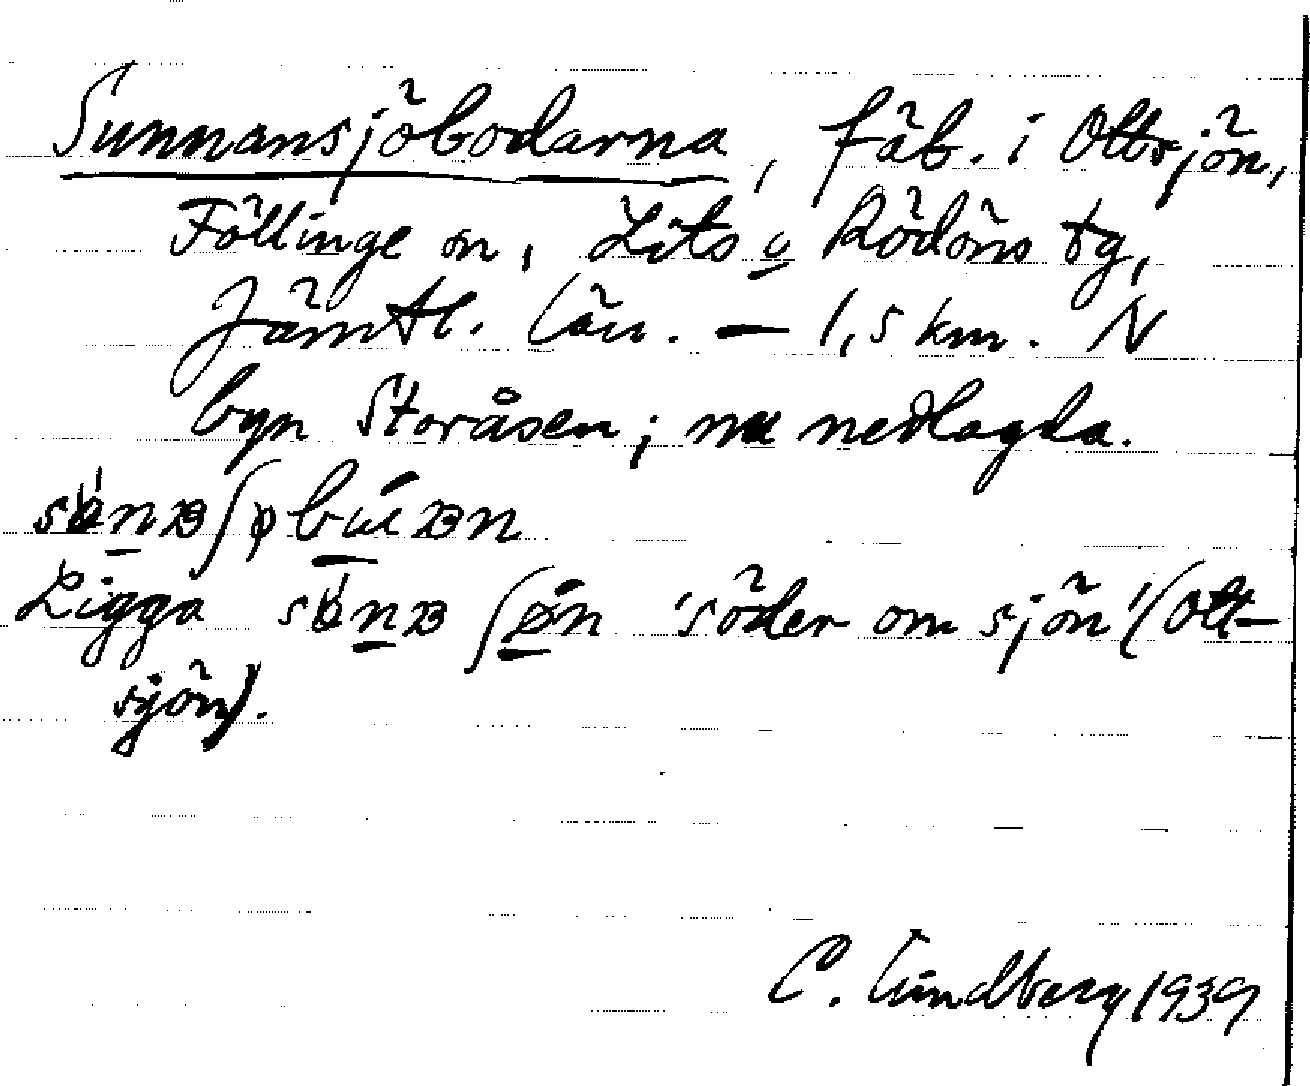 Sunnansjöbodarna, fäb. i Ottsjön,
Föllinge sn, Lits o Rödöns tg,
Jämtl. län. — 1,5 km. N
byn Storåsen; nu nedlagda.
Ligga 'söder om sjön' (Ott-
sjön).
C. Lundberg 1939